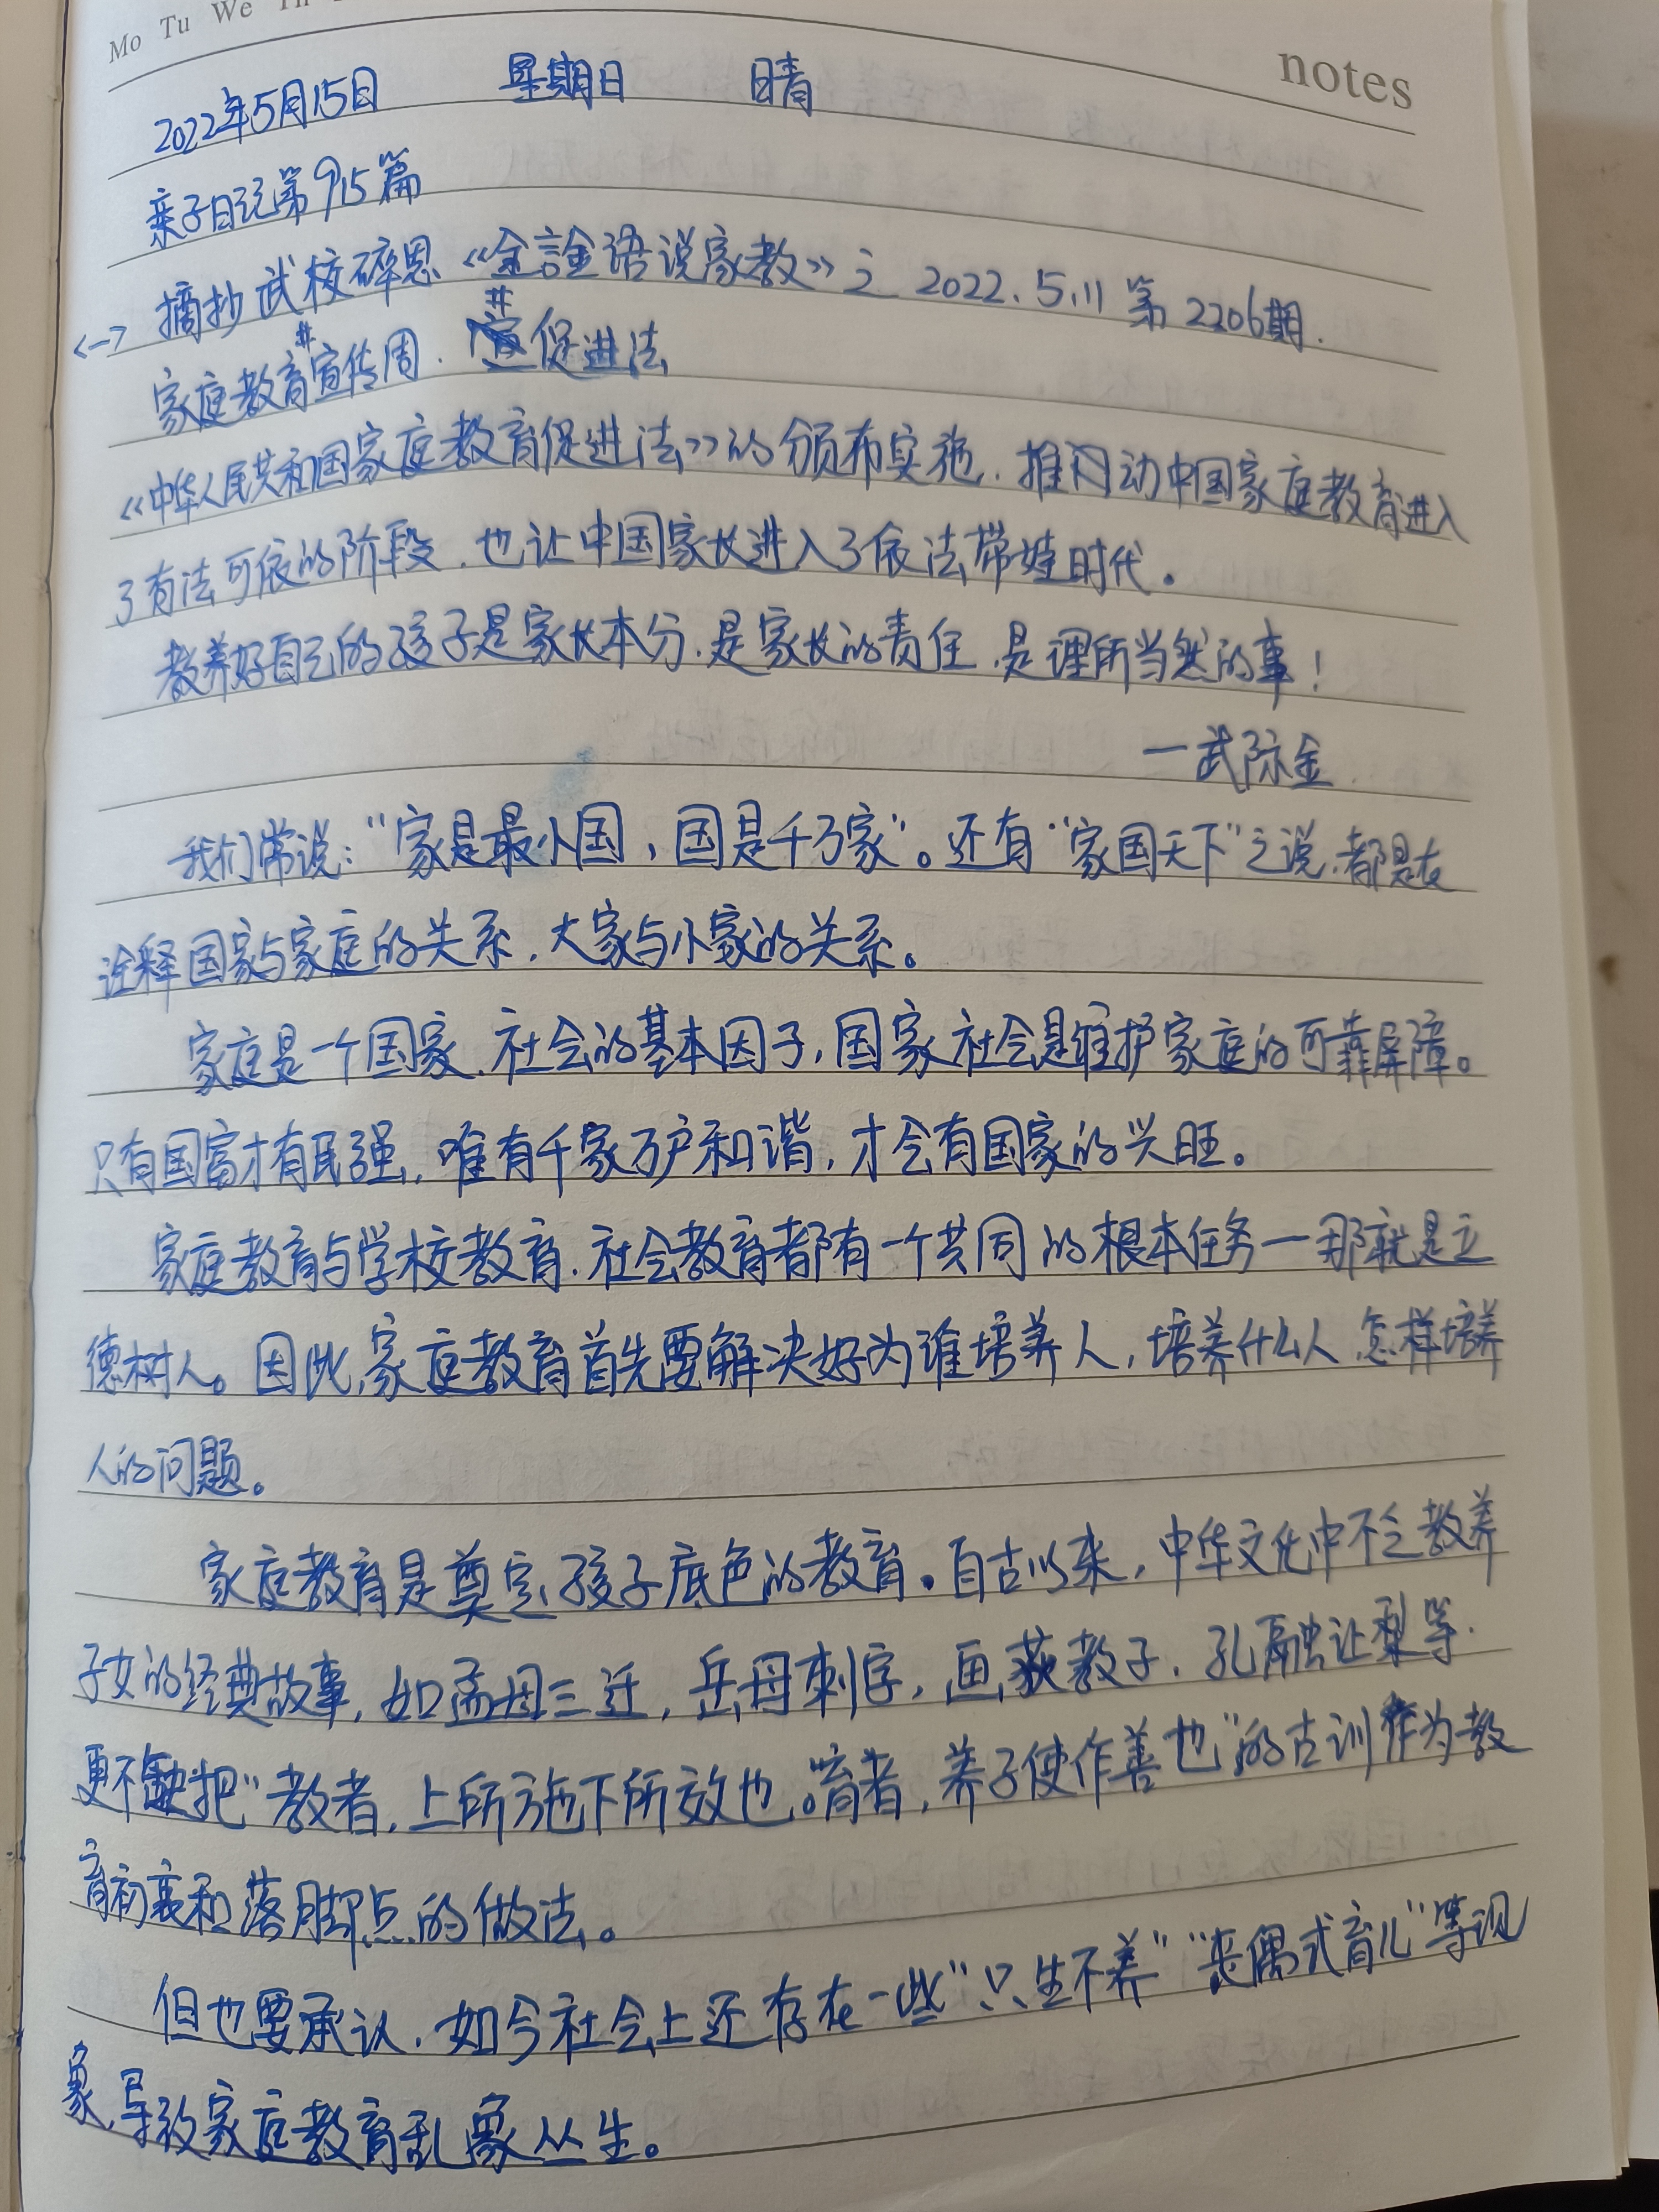 Mo Tu We Th
notes
2022年5月15日 星期日 晴
亲子日记第915篇
<一> 摘抄武校碎思《金言金语说家教》之 2022.5.11 第2206期.
家庭教育#宣传周. #促进法
《中华人民共和国家庭教育促进法》的颁布实施,推动中国家庭教育进入
了有法可依的阶段,也让中国家长进入了依法带娃时代。
教养好自己的孩子是家长本分,是家长的责任,是理所当然的事!
一武际金
我们常说:“家是最小国,国是千万家”。还有“家国天下”之说,都是在
诠释国家与家庭的关系,大家与小家的关系。
家庭是一个国家、社会的基本因子,国家社会是维护家庭的可靠屏障。
只有国富才有民强,唯有千家万户和谐,才会有国家的兴旺。
家庭教育与学校教育、社会教育都有一个共同的根本任务一那就是立
德树人。因此,家庭教育首先要解决好为谁培养人,培养什么人,怎样培养
人的问题。
家庭教育是奠定孩子底色的教育。自古以来,中华文化中不乏教养
子女的经典故事,如孟母三迁,岳母刺字,画荻教子,孔融让梨等.
更不缺把“教者,上所施下所效也。”育者,养子使作善也”的古训作为教
育初衷和落脚点的做法。
但也要承认,如今社会上还存在一些“只生不养”“丧偶式育儿”等现
象,导致家庭教育乱象丛生。